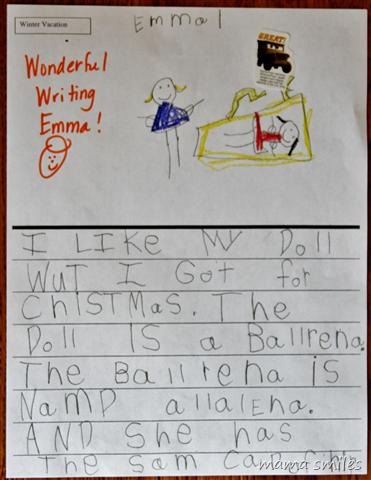 Winter Vacation
Emma
GREAT!
Wonderful
Writing
Emma!
I LIKe My Doll
WuT I GoT for
ChISTMas. The
Doll IS a Ballrena.
The Ballrena iS
NaMD allalEna.
AND She has
The Sam
mama smiles